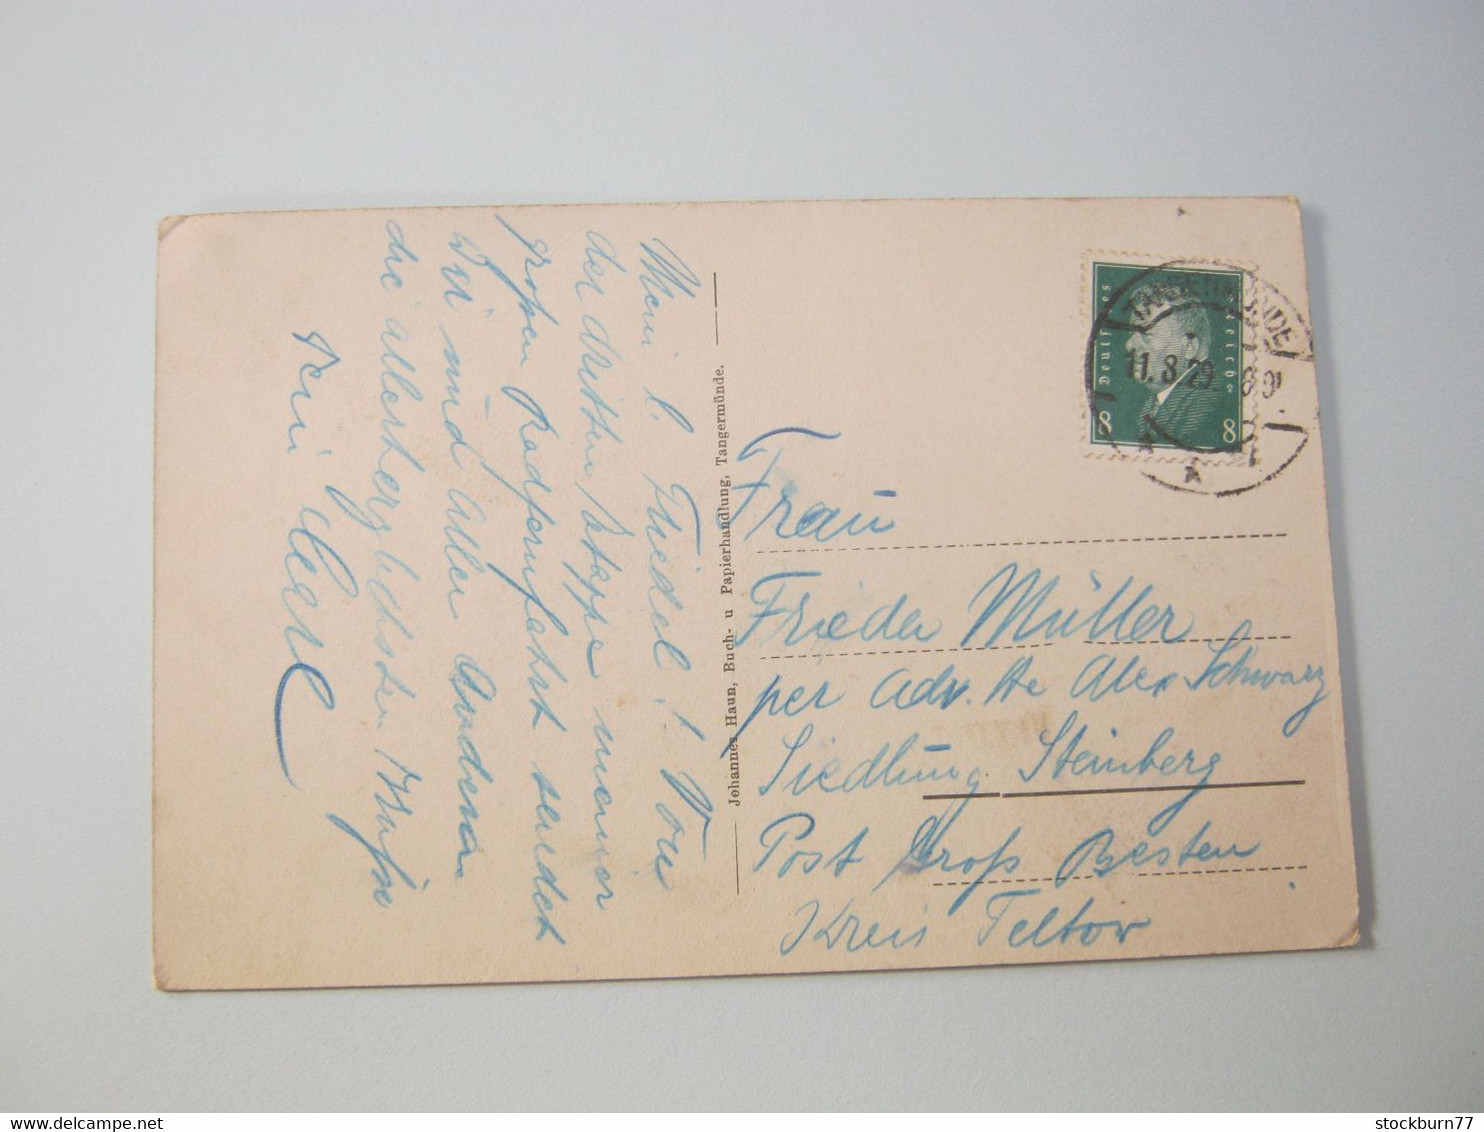 Mein l. Friedel! Von
der dritten Etappe meiner
großen Radfernfahrt sendet
Dir und allen Anderen
die allerherzlichsten Grüße
Dein Carl
Johannes Haun, Buch- u Papierhandlung, Tangermünde.
Deutsches Reich
8 8
TANGERMÜNDE
11.8.29
Frau
Frieda Müller
per Adr. Hr Alex Schwarz
Siedlung Steinberg
Post Groß Besten
Kreis Teltow
stockburn77